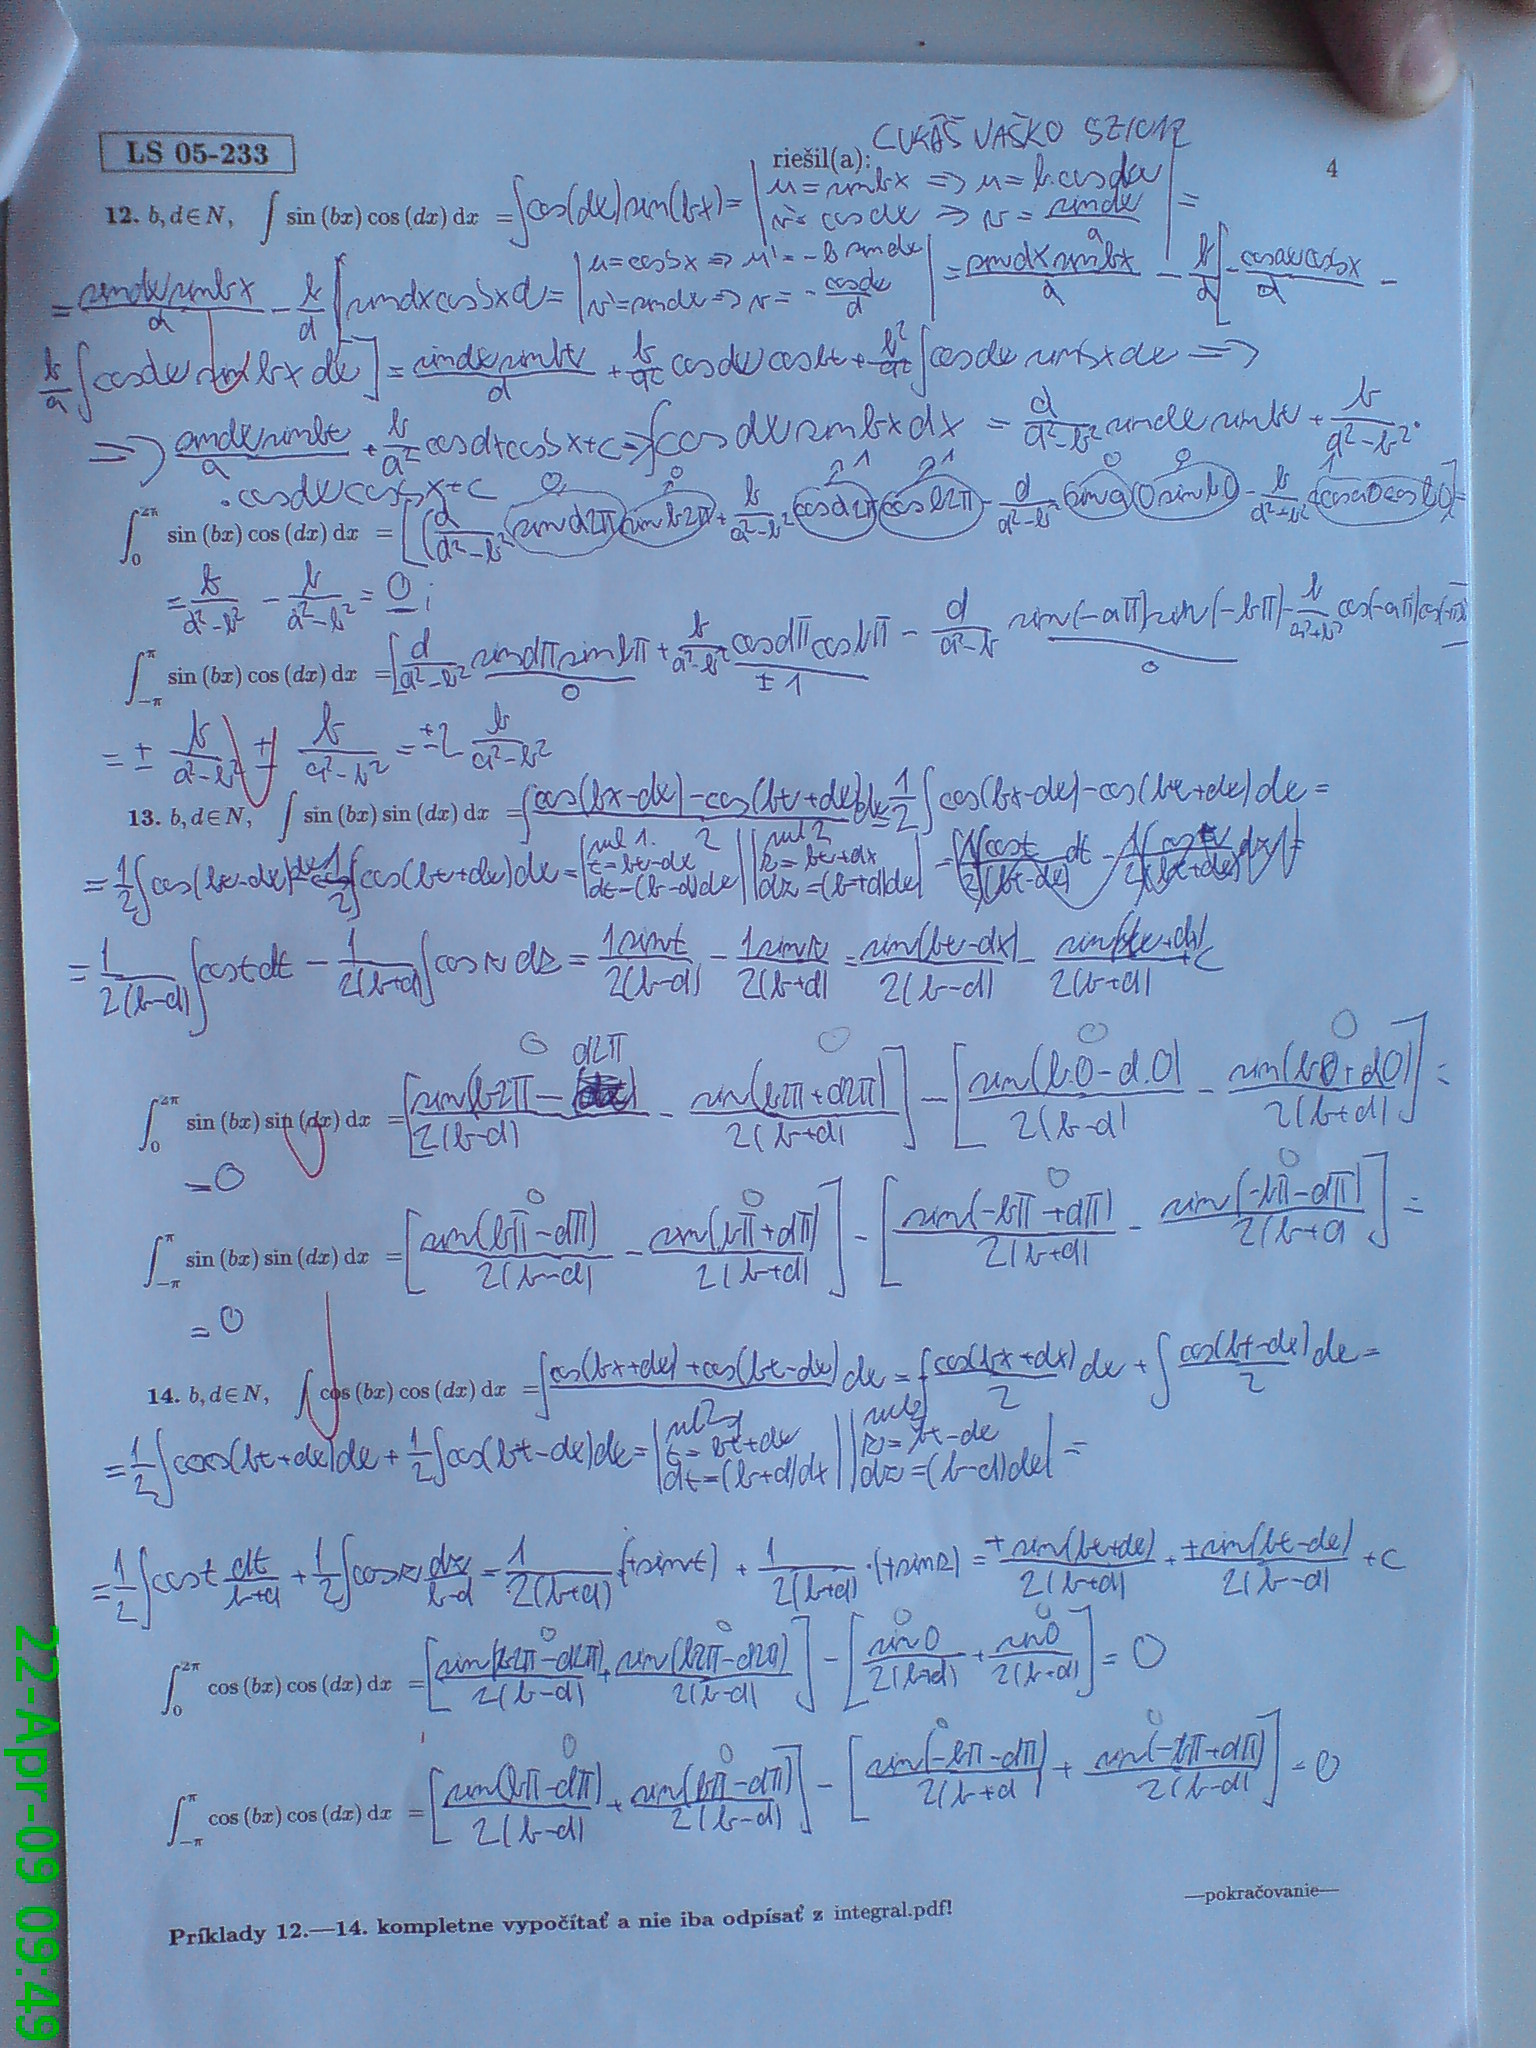 LS 05-233
riešil(a): LUKÁŠ VAŠKO 5ZI012
4
12. b, d ∈ N, ∫ sin (bx) cos (dx) dx = ∫cos(dx)sin(bx) = | u = sinbx => u = b.cosdx
v' = cosdx => v = sindx/d | =
= sindx sinbx/d - b/d ∫sindx cosbx d = | u = cosbx => u' = -b sindx
v' = sindx => v = -cosdx/d | = sindx sinbx/d - b/d [ -cosdx cosbx/d -
b/d ∫cosdx sin bx dx ] = sindx sinbx/d + b/d² cosdx cosbx + b²/d² ∫cosdx sinbx dx =>
=> sindx sinbx/d + b/d² cosdx cosbx + c => ∫cos dx sinbx dx = d/d²-b² sindx sinbx + b/d²-b² .
. cosdx cosbx + c
∫₀^2π sin (bx) cos (dx) dx = [ ( d/d²-b² sind2π sinb2π + b/d²-b² cosd2π cosb2π - d/d²-b² sin d 0 sinb0 - b/d²+b² cosd0 cosb0 ] =
= b/d²-b² - b/d²-b² = 0 ;
∫₋π^π sin (bx) cos (dx) dx = [ d/d²-b² sindπ sinbπ + b/d²-b² cosdπ cosbπ - d/d²-b sin(-dπ) sin(-bπ) - b/d²+b² cos(-dπ)
0 ±1 0
= ± b/d²-b² ± b/d²-b² = ±2 b/d²-b²
13. b, d ∈ N, ∫ sin (bx) sin (dx) dx = ∫ cos(bx-dx) - cos(bx+dx)/2 dx = 1/2 ∫ cos(bx-dx) - cos(bx+dx) dx =
= 1/2 ∫cos(bx-dx) dx - 1/2 ∫cos(bx+dx) dx = | sub 1. t = bx-dx dt = (b-d)dx | | sub 2 z = bx+dx dz = (b+d)dx |
= 1/2(b-d) ∫cost dt - 1/2(b+d) ∫cos z dz = 1 sint/2(b-d) - 1 sinz/2(b+d) = sin(bx-dx)/2(b-d) - sin(bx+dx)/2(b+d) + c
∫₀^2π sin (bx) sin (dx) dx = [ sin(b2π - d2π)/2(b-d) - sin(b2π+d2π)/2(b+d) ] - [ sin(b.0-d.0)/2(b-d) - sin(b0+d0)/2(b+d) ] =
= 0
∫₋π^π sin (bx) sin (dx) dx = [ sin(bπ-dπ)/2(b-d) - sin(bπ+dπ)/2(b+d) ] - [ sin(-bπ+dπ)/2(b+d) - sin(-bπ-dπ)/2(b+d ] =
= 0
14. b, d ∈ N, ∫ cos (bx) cos (dx) dx = ∫ cos(bx+dx) + cos(bx-dx) dx = ∫ cos(bx+dx)/2 dx + ∫ cos(bx-dx)/2 dx =
= 1/2 ∫cos(bx+dx)dx + 1/2 ∫cos(bx-dx)dx = | t = bx+dx dt = (b+d)dx | | sub2 z = bx-dx dz = (b-d)dx | =
= 1/2 ∫cost dt/b+d + 1/2 ∫cosz dz/b-d = 1/2(b+d) .(+sint) + 1/2(b+d) .(+sinz) = +sin(bx+dx)/2(b+d) + +sin(bx-dx)/2(b-d) + c
∫₀^2π cos (bx) cos (dx) dx = [ sin(b2π-d2π)/2(b-d) + sin(b2π-d2π)/2(b-d) ] - [ sin0/2(b+d) + sin0/2(b+d) ] = 0
∫₋π^π cos (bx) cos (dx) dx = [ sin(bπ-dπ)/2(b-d) + sin(bπ-dπ)/2(b-d) ] - [ sin(-bπ-dπ)/2(b+d + sin(-bπ+dπ)/2(b-d) ] = 0
—pokračovanie—
Príklady 12.—14. kompletne vypočítať a nie iba odpísať z integral.pdf!
22-Apr-09 09:49